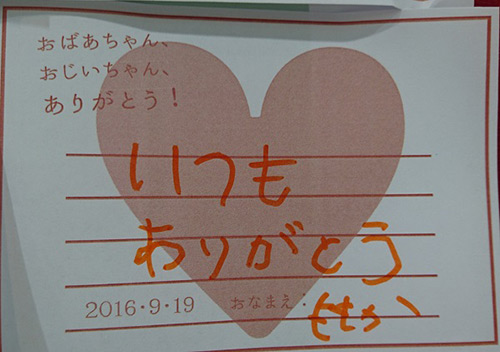 おばあちゃん、
おじいちゃん、
ありがとう！
いつも
ありがとう
2016・9・19 おなまえ：ももか